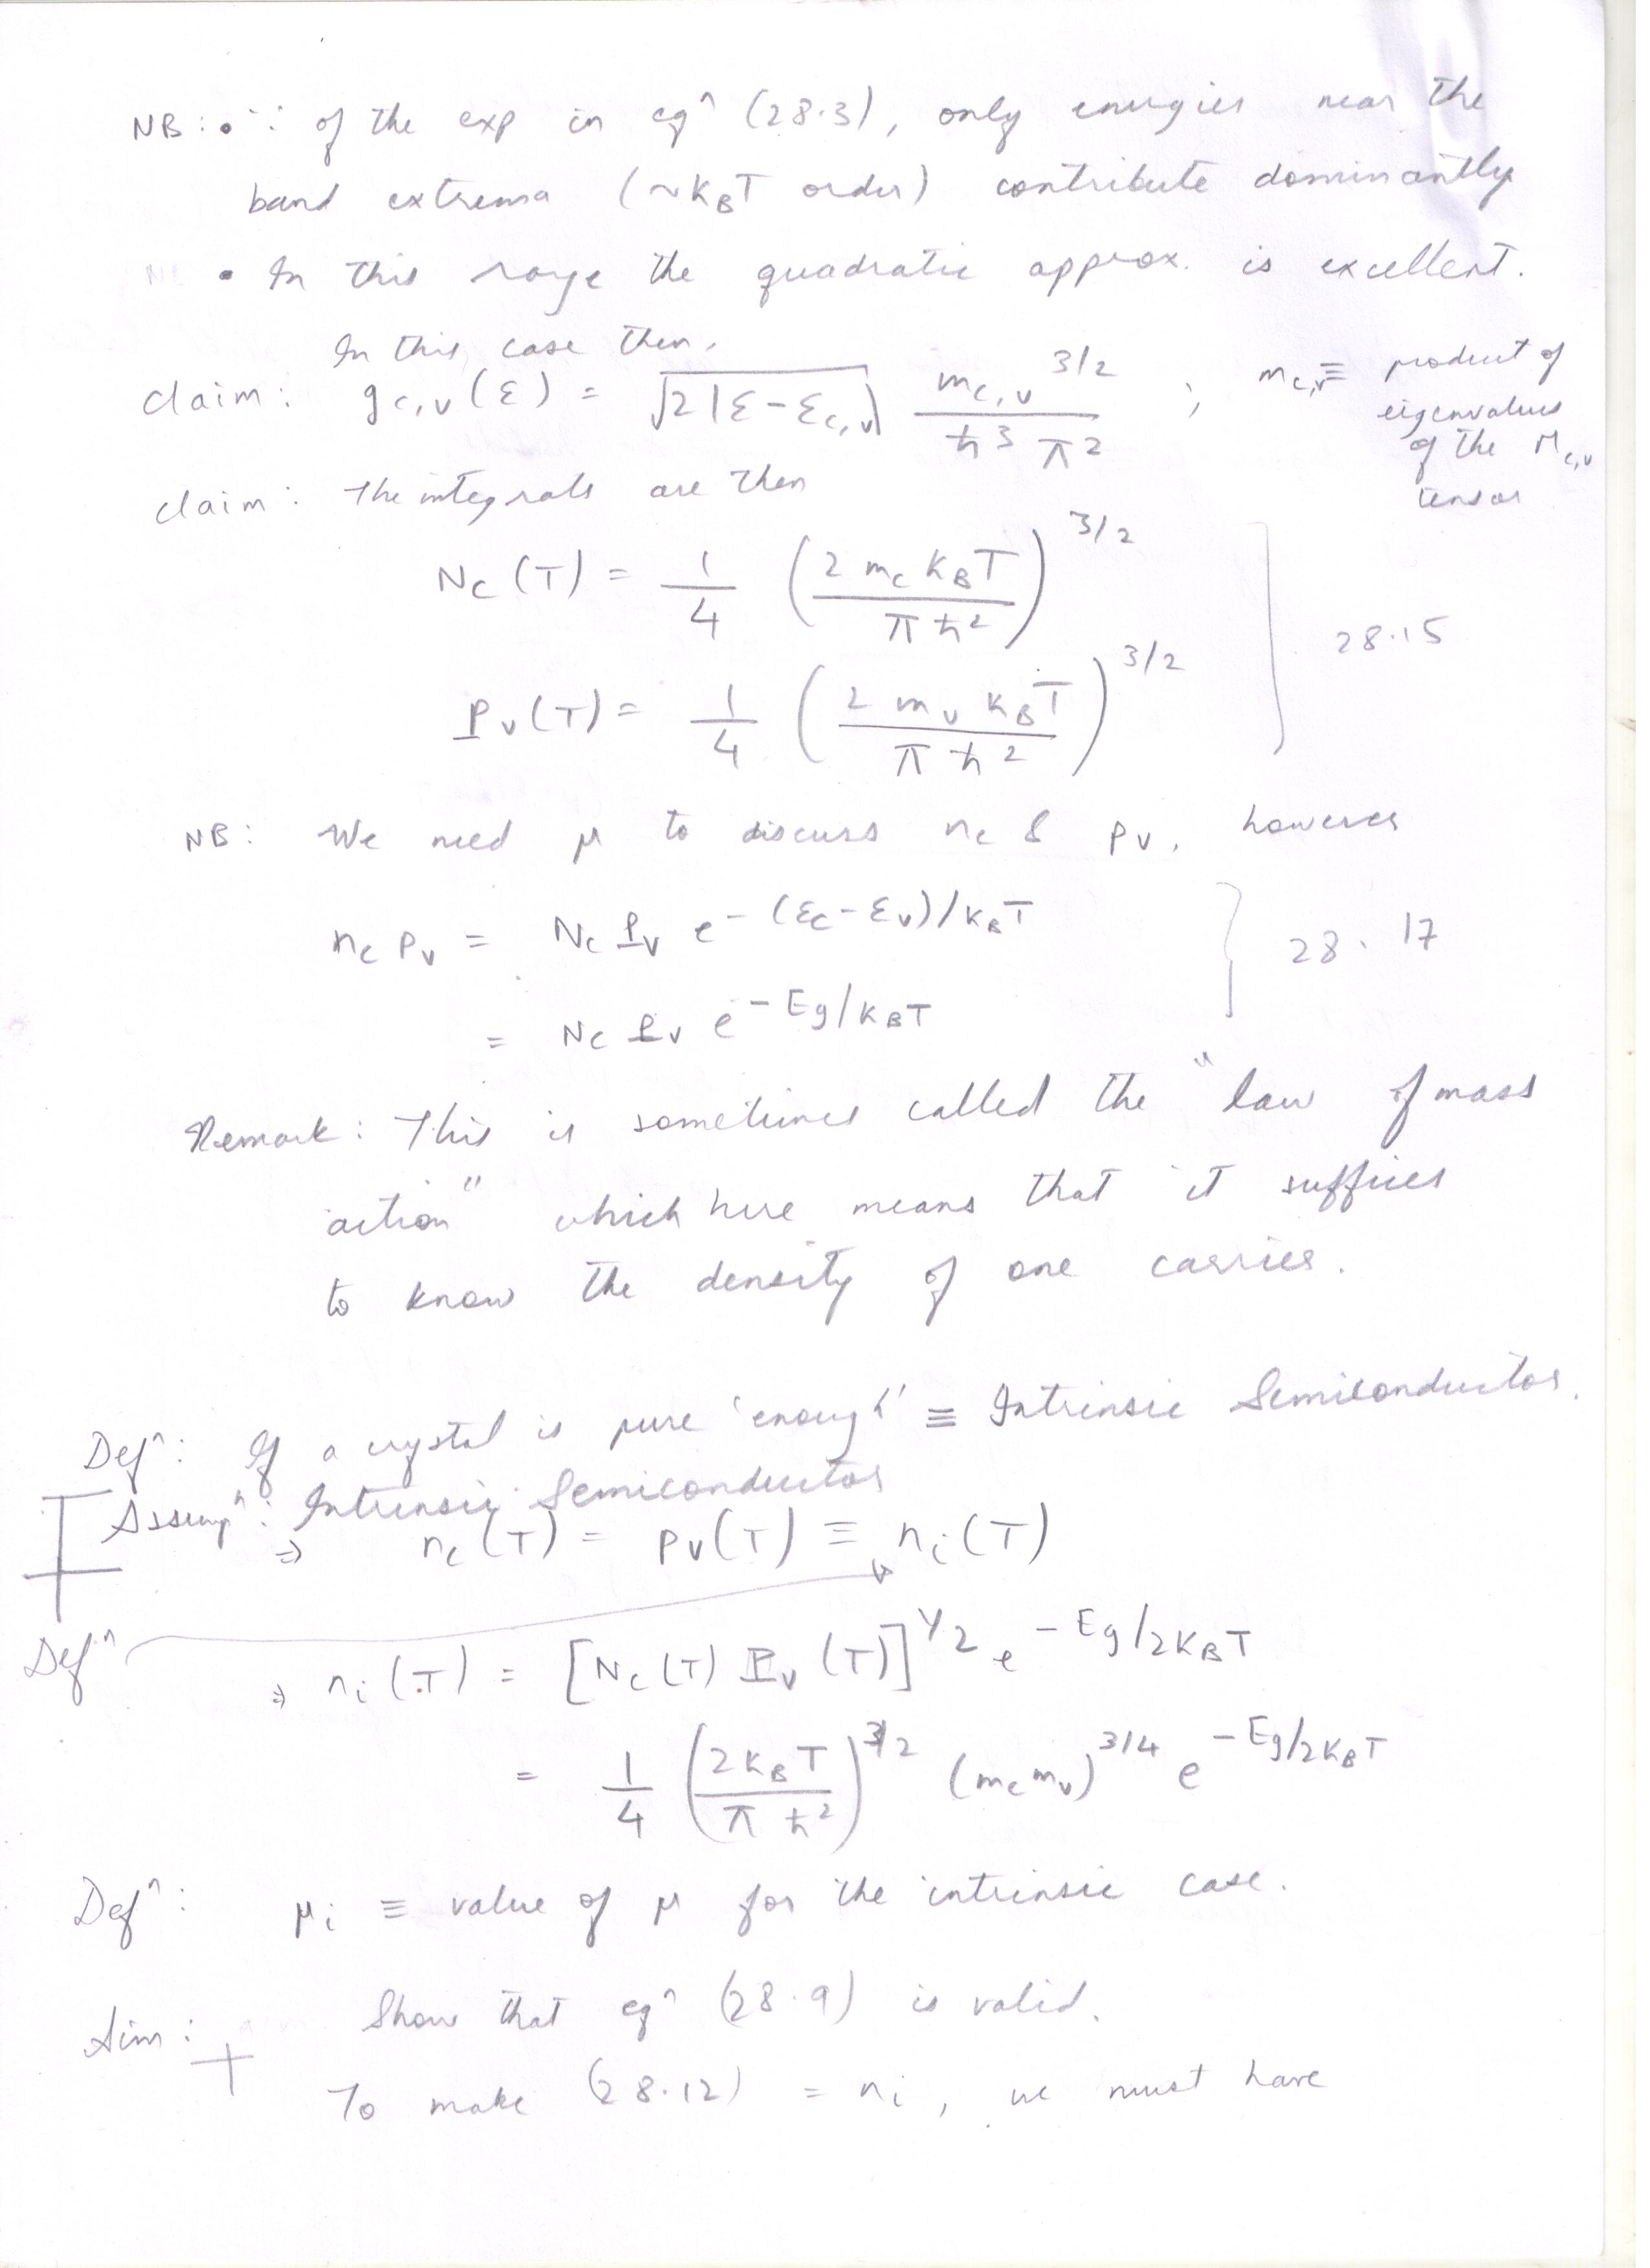 NB: • ∵ of the exp in eqⁿ (28.3), only energies near the
band extrema (~k_BT order) contribute dominantly
• In this range the quadratic approx. is excellent.
In this case then,
Claim: g_{c,v}(ε) = √(2|ε-ε_{c,v}|) m_{c,v}^{3/2} / ħ³π² ; m_{c,v} ≡ product of eigenvalues of the M_{c,v} tensor
Claim: The integrals are then
N_c(T) = 1/4 (2 m_c k_BT / πħ²)^{3/2}
P_v(T) = 1/4 (2 m_v k_BT / πħ²)^{3/2}
28.15
NB: We need μ to discuss n_c & p_v, however
n_c p_v = N_c P_v e^{-(ε_c-ε_v)/k_BT}
= N_c P_v e^{-Eg/k_BT}
28.17
Remark: This is sometimes called the "law of mass
action" which here means that it suffices
to know the density of one carrier.
Defⁿ: If a crystal is pure 'enough' ≡ Intrinsic Semiconductor.
Assumpⁿ: Intrinsic Semiconductor
⇒ n_c(T) = p_v(T) ≡ n_i(T)
Defⁿ
⇒ n_i(T) = [N_c(T) P_v(T)]^{1/2} e^{-Eg/2k_BT}
= 1/4 (2k_BT / πħ²)^{3/2} (m_c m_v)^{3/4} e^{-Eg/2k_BT}
Defⁿ: μ_i ≡ value of μ for the intrinsic case.
Aim: Show that eqⁿ (28.9) is valid.
To make (28.12) = n_i, we must have